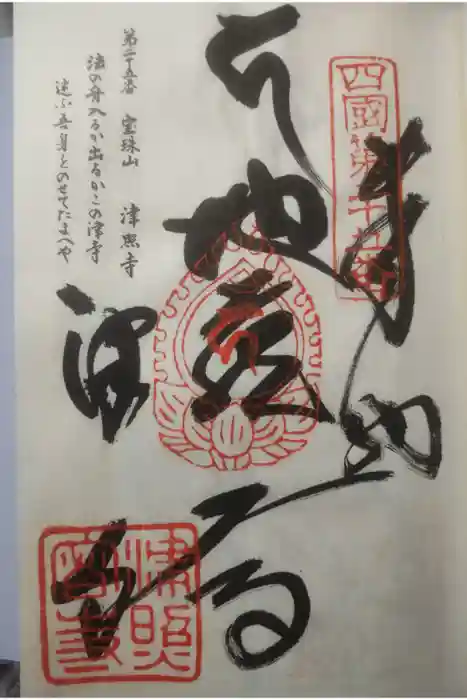 四國第二十五番
奉納
地蔵
津寺
津照
第二十五番 宝珠山 津照寺
法の舟入るか出るかこの津寺
迷ふ吾身をのせてたまへや